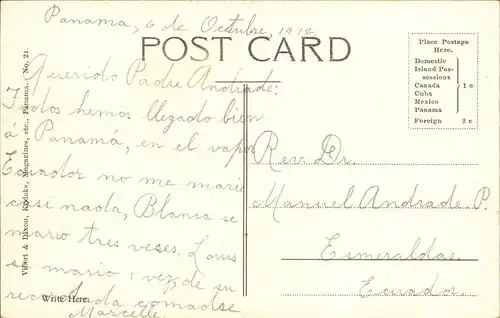 Panama, 6 de Octubre, 1912
POST CARD
Querido Padre Andrade:
Todos hemos llegado bien
á Panamá, en el vapor
Ecuador no me marie
casi nada, Blanca se
mario tres veses. Louis
se mario 1 vez, de su
recordada comadse
Marcelle
Write Here.
Vibert & Dixon, Kodaks, Magazines, etc., Panama. No. 21.
Place Postage
Here.
Domestic
Island Pos-
sessions
Canada
Cuba
Mexico
Panama
1 c
Foreign 2 c
Rev. Dr.
Manuel Andrade. P.
Esmeraldas.
Ecuador.